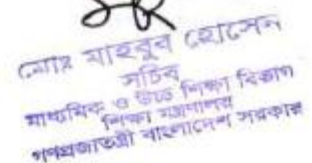 মোঃ মাহবুব হোসেন
সচিব
মাধ্যমিক ও উচ্চ শিক্ষা বিভাগ
শিক্ষা মন্ত্রণালয়
গণপ্রজাতন্ত্রী বাংলাদেশ সরকার